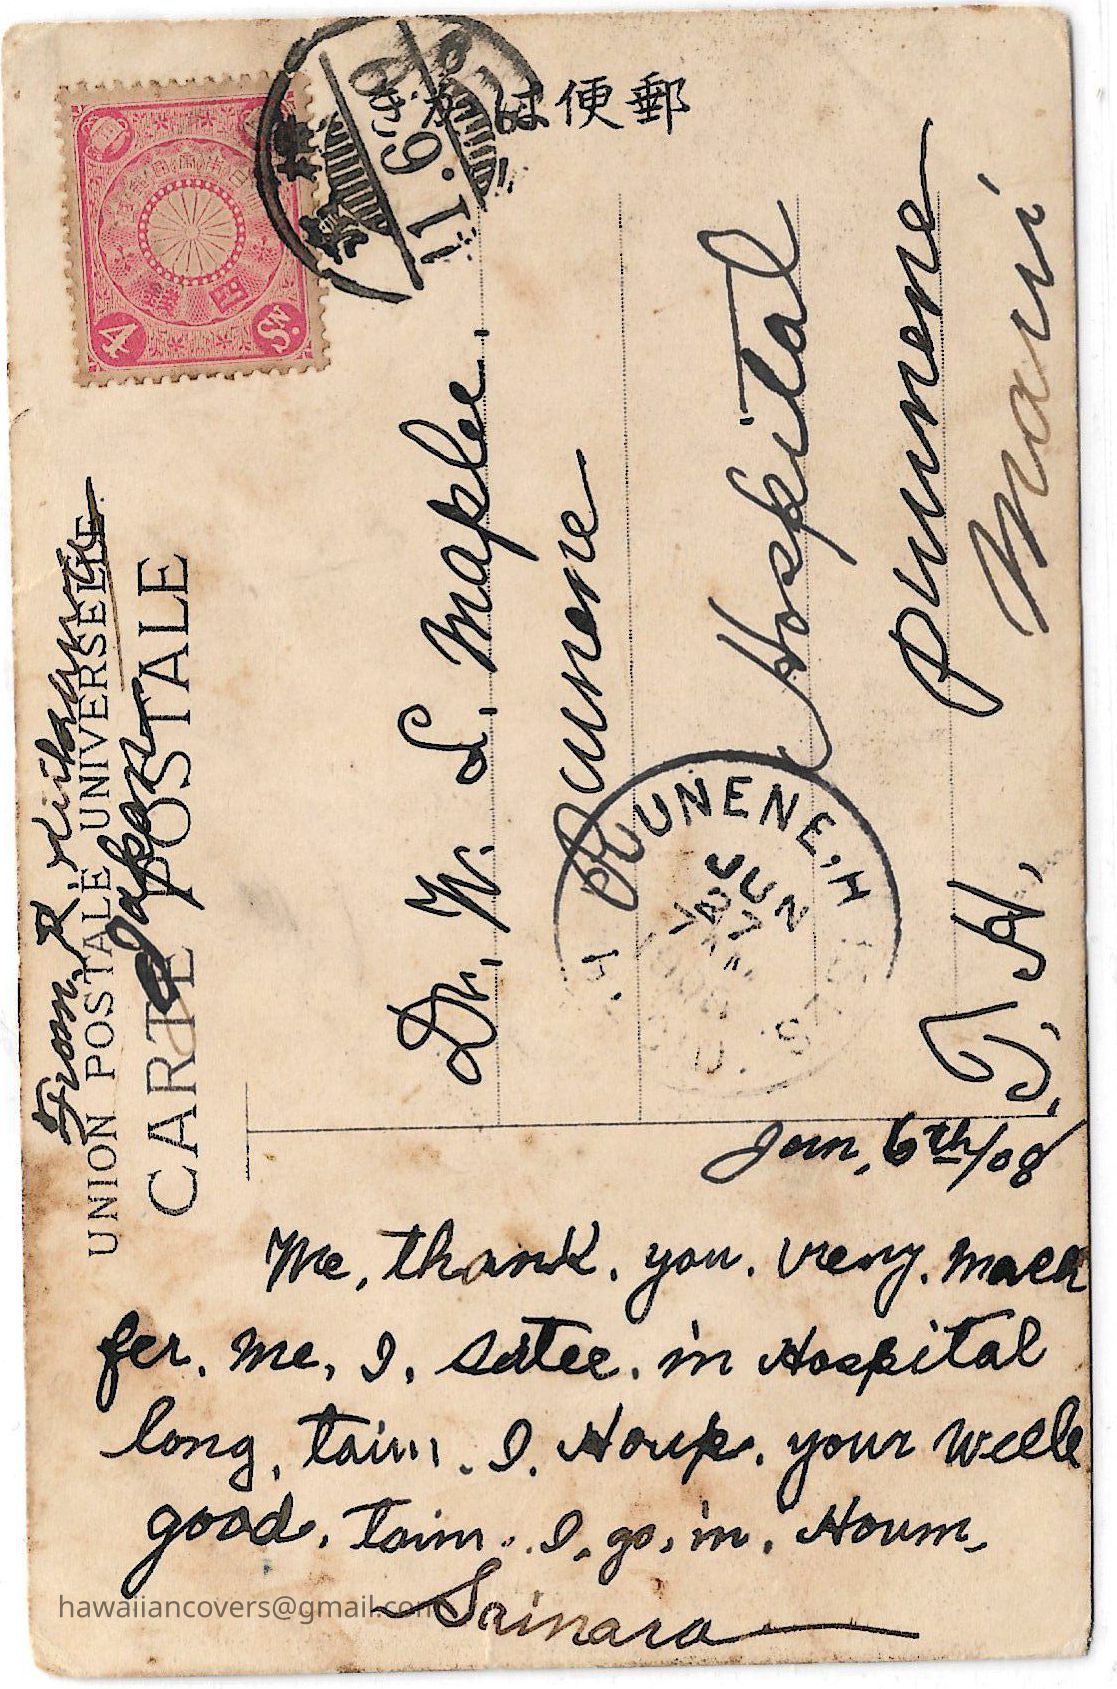 郵便は
4
Sn.
UNION POSTALE UNIVERSELLE.
CARTE POSTALE
From, R,
Japan
Dr, W. L, Maple,
Puunene
Hospital
puunene
Maui
T, H,
PUUNENE, H
JUN
Jan, 6th/08
Me, thank, you, vreny, mach
fer, me, I, satee, in Hospital
long, taim, I, Houp, your weele
good, taim, I, go, in, Houm,
Sainara
hawaiiancovers@gmail.com